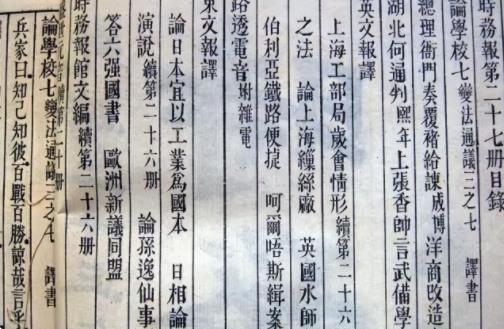 時務報第二十七册目錄
論學校七 變法通議三之七 譯書
總理衙門奏覆褚給諫成博洋商改造
湖北何通判熙年上張香帥言武備學
英文報譯
上海工部局歲會情形 續第二十六
之法 論上海繅絲廠 英國水師
伯利亞鐵路便捷 呵爾唔斯緝案
路透電音 坿雜電
東文報譯
論日本宜以工業爲國本 日相論
演說 續第二十六册 論孫逸仙事
答六强國書 歐洲新議同盟
時務報館文編 續第二十六册
論學校七 變法通議三之七 譯書
兵家曰知己知彼百戰百勝諒哉言乎